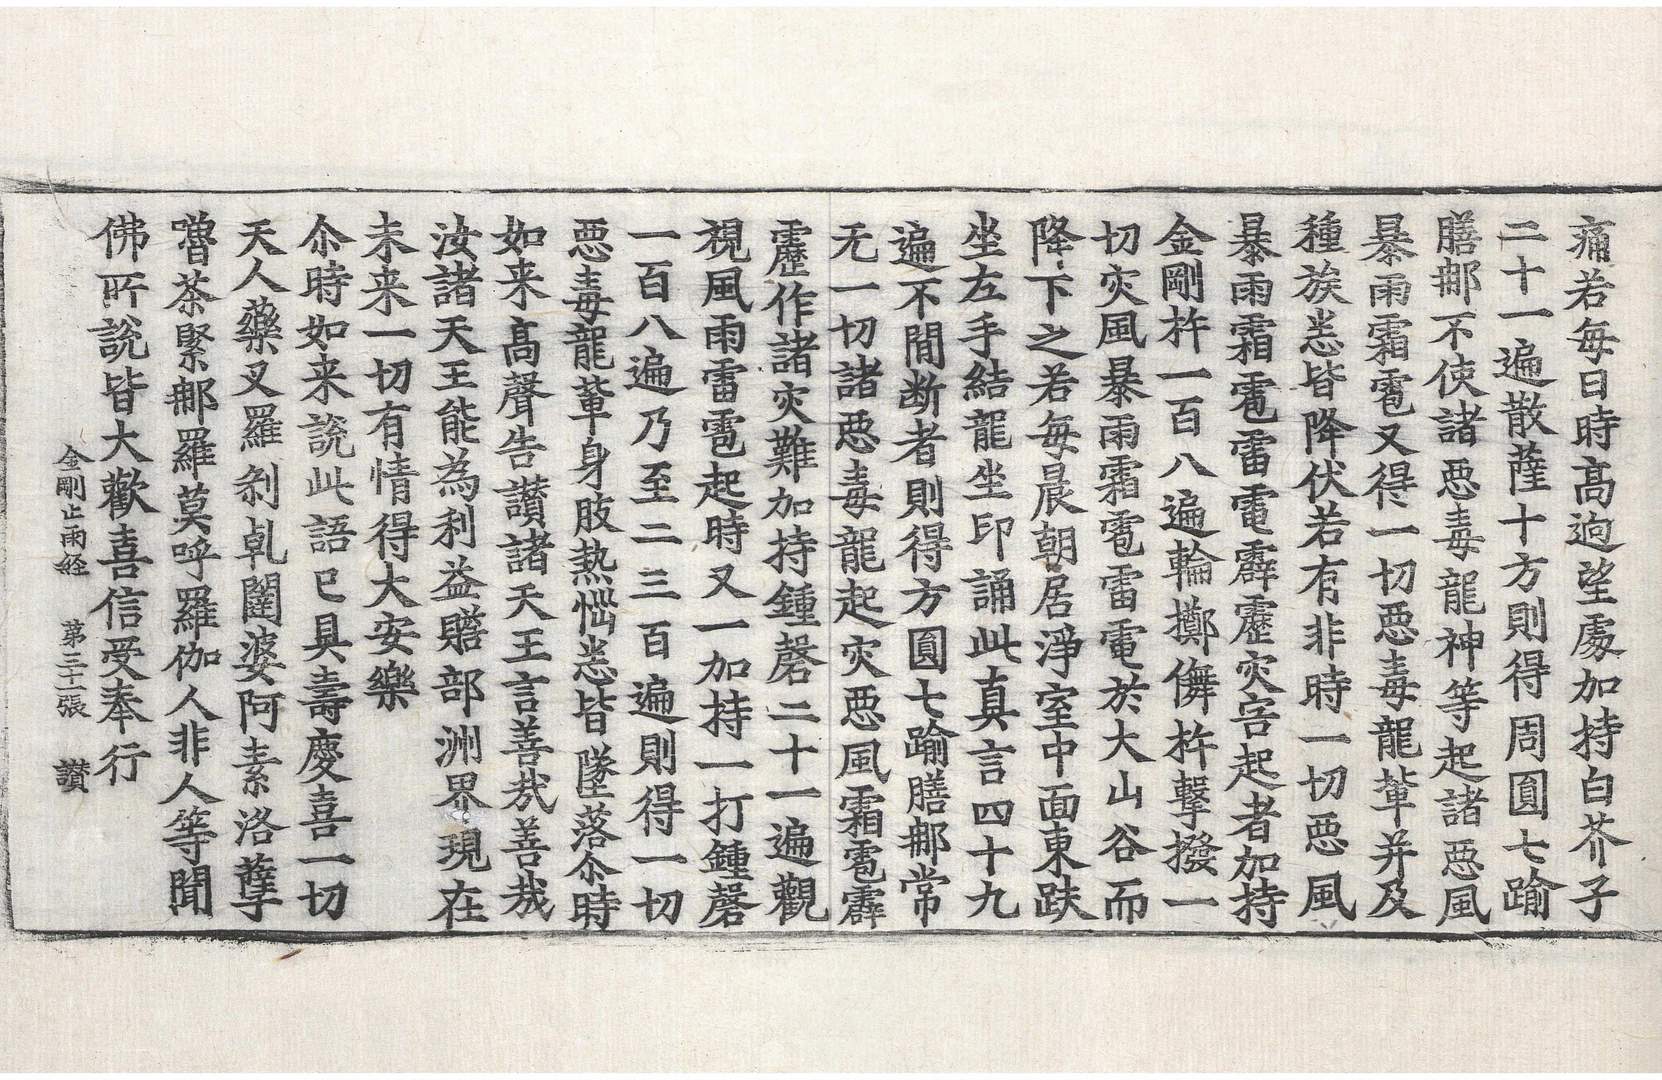 痛若每日時髙逈望處加持白芥子
二十一遍散薩十方則得周圓七踰
膳郍不使諸惡毒龍神等起諸惡風
暴雨霜雹又得一切惡毒龍軰并及
種族恙皆降伏若有非時一切惡風
暴雨霜雹雷電霹靂灾害起者加持
金剛杵一百八遍輪擲儛杵擊撥一
切灾風暴雨霜雹雷電於大山谷而
降下之若每晨朝居淨室中面東趺
坐左手結龍坐印誦此真言四十九
遍不間断者則得方圓七踰膳郍常
无一切諸惡毒龍起灾惡風霜雹霹
靂作諸灾難加持鍾磬二十一遍觀
視風雨雷雹起時又一加持一打鍾磬
一百八遍乃至二三百遍則得一切
惡毒龍軰身肢熱惱恙皆墜落尒時
如来髙聲告讃諸天王言善㢤善㢤
汝諸天王能為利益贍部洲界現在
未来一切有情得大安樂
尒時如来說此語已具壽慶喜一切
天人藥叉羅剎乹闥婆阿素洛孽
嚕荼緊郍羅莫呼羅伽人非人等聞
佛所說皆大歡喜信受奉行
金剛止雨経 第三十一張 讃